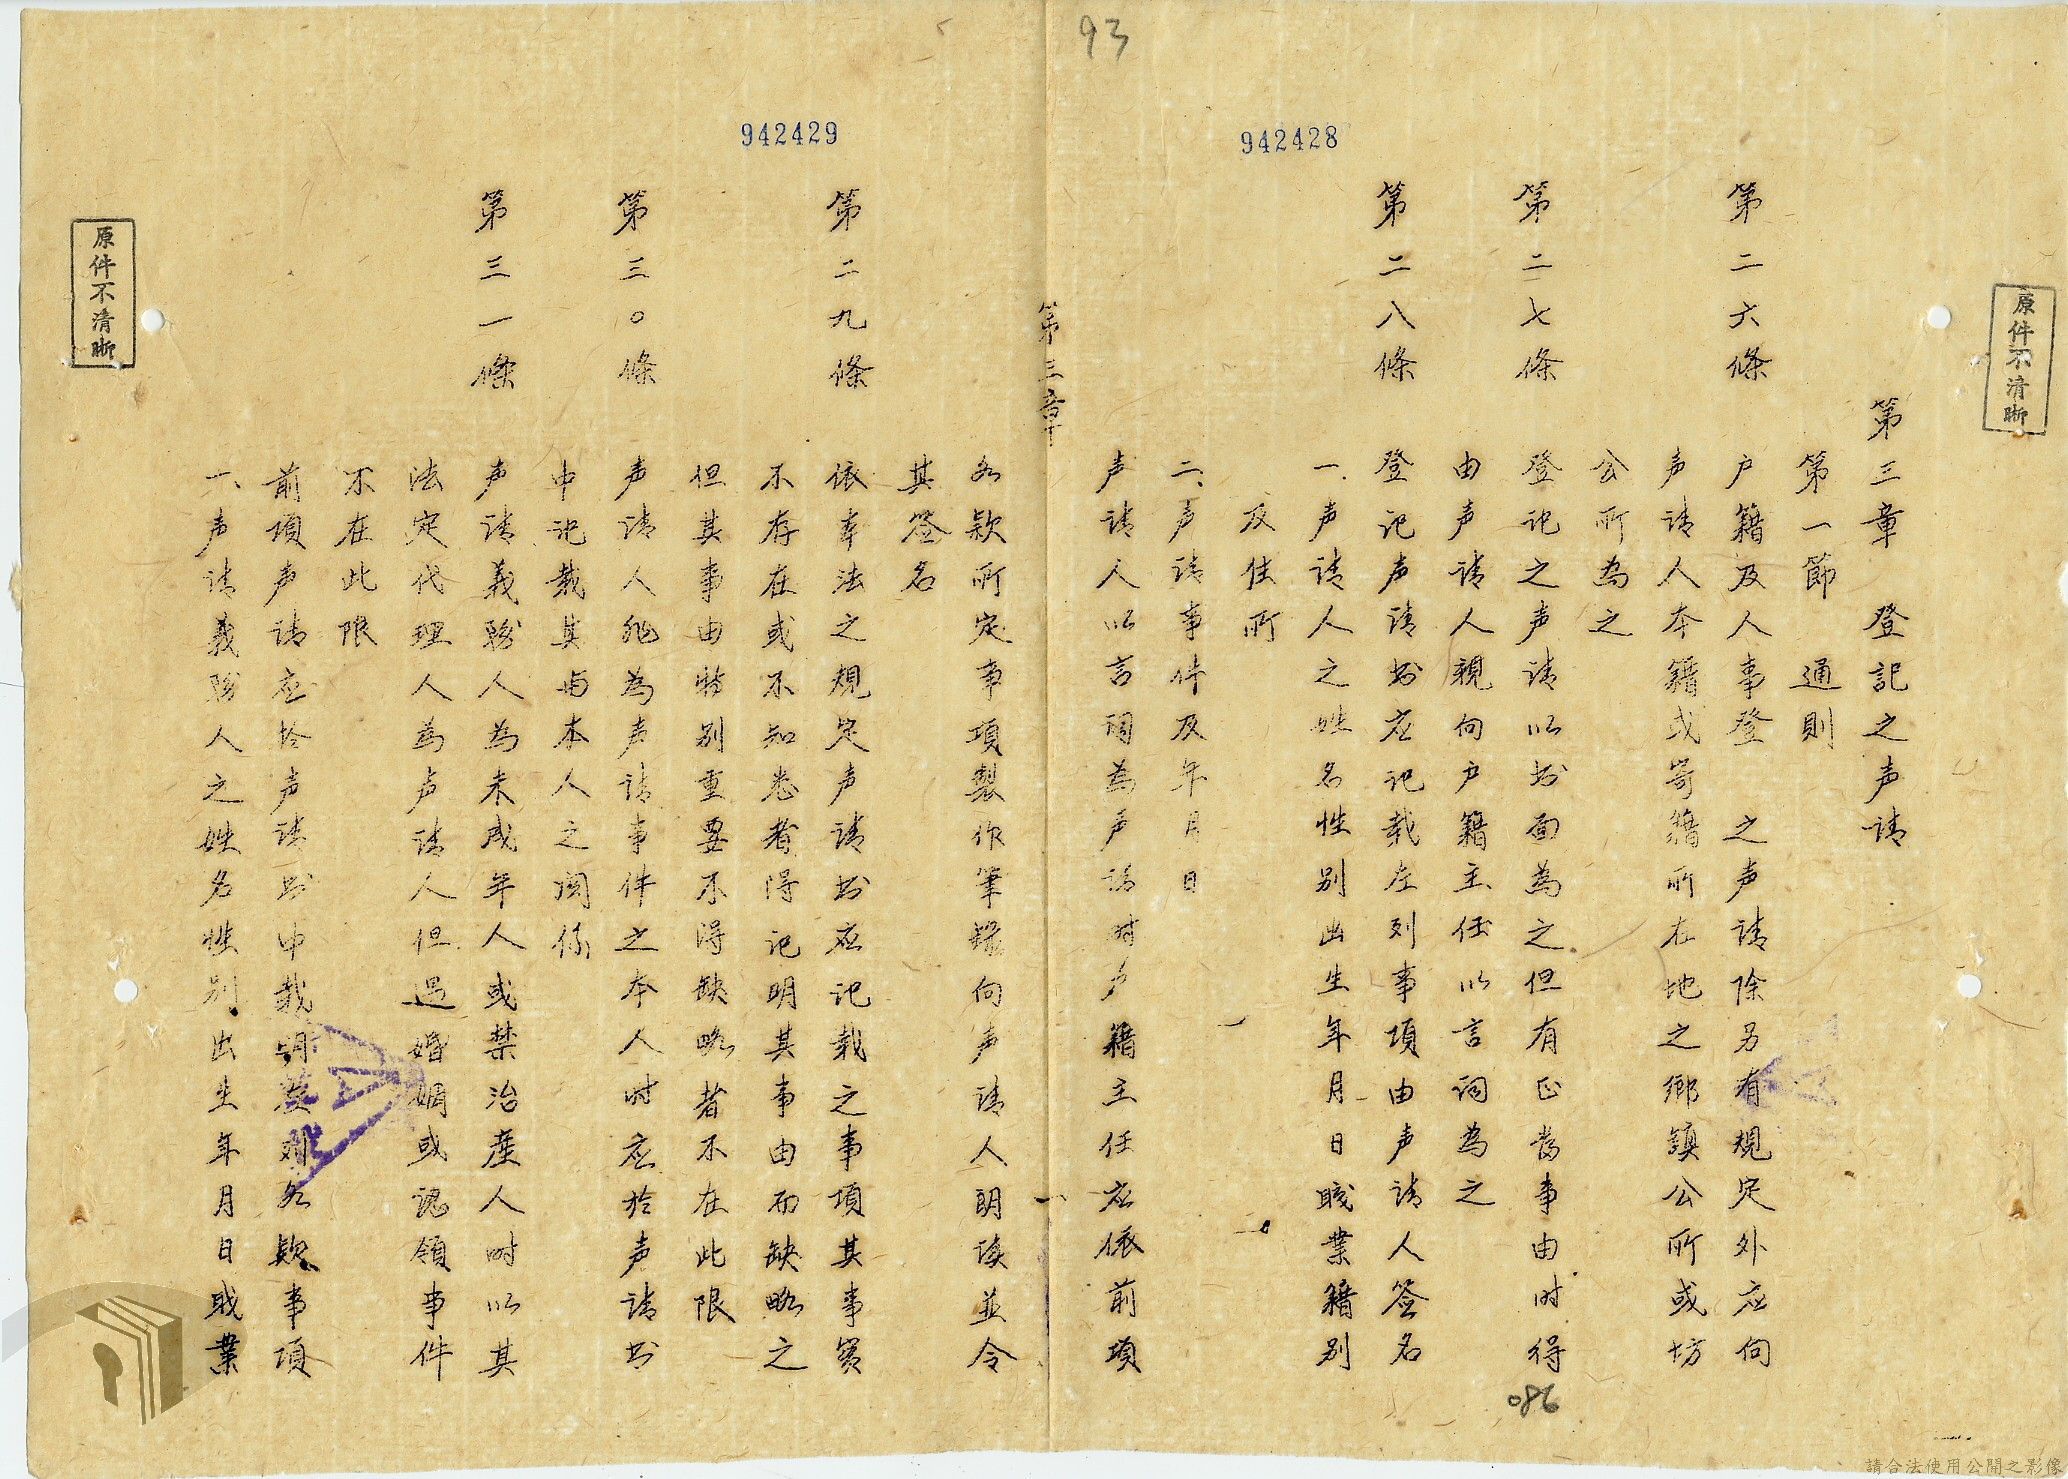 93
942428
942429
原件不清晰
原件不清晰
第三章　登記之声请
第一節　通則
第二六條　户籍及人事登　之声请除另有規定外应向
声请人本籍或寄籍所在地之鄉鎮公所或坊
公所為之
第二七條　登记之声请以书面為之但有正当事由时得
由声请人親向户籍主任以言词為之
第二八條　登记声请书应记载左列事項由声请人签名
一、声请人之姓名性别出生年月日职業籍别
及住所
二、声请事件及年月日
声请人以言词為声请时户籍主任应依前項
第三章
各款所定事項製作筆録向声请人朗读並令
其签名
第二九條　依本法之規定声请书应记载之事項其事实
不存在或不知悉者得记明其事由而缺略之
但其事由特别重要不得缺略者不在此限
第三〇條　声请人非為声请事件之本人时应於声请书
中记载其与本人之関係
第三一條　声请義務人為未成年人或禁治産人时以其
法定代理人為声请人但遇婚姻或認領事件
不在此限
前項声请应於声请书中載明左列各款事項
一、声请義務人之姓名性别出生年月日职業
086
請合法使用公開之影像